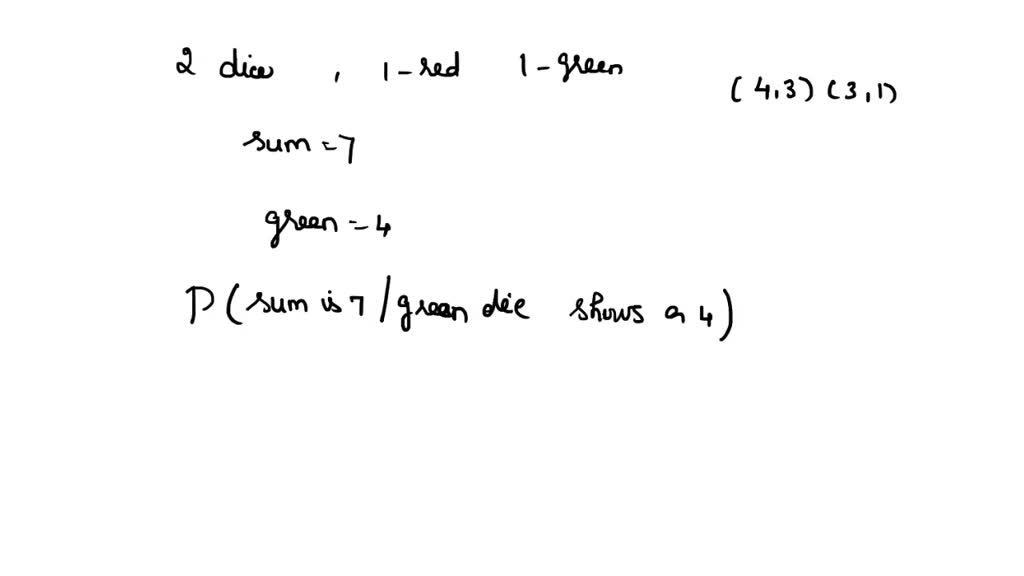 2 dice , 1-red 1-green
(4,3) (3,1)
sum = 7
green = 4
P(sum is 7 / green die shows a 4)